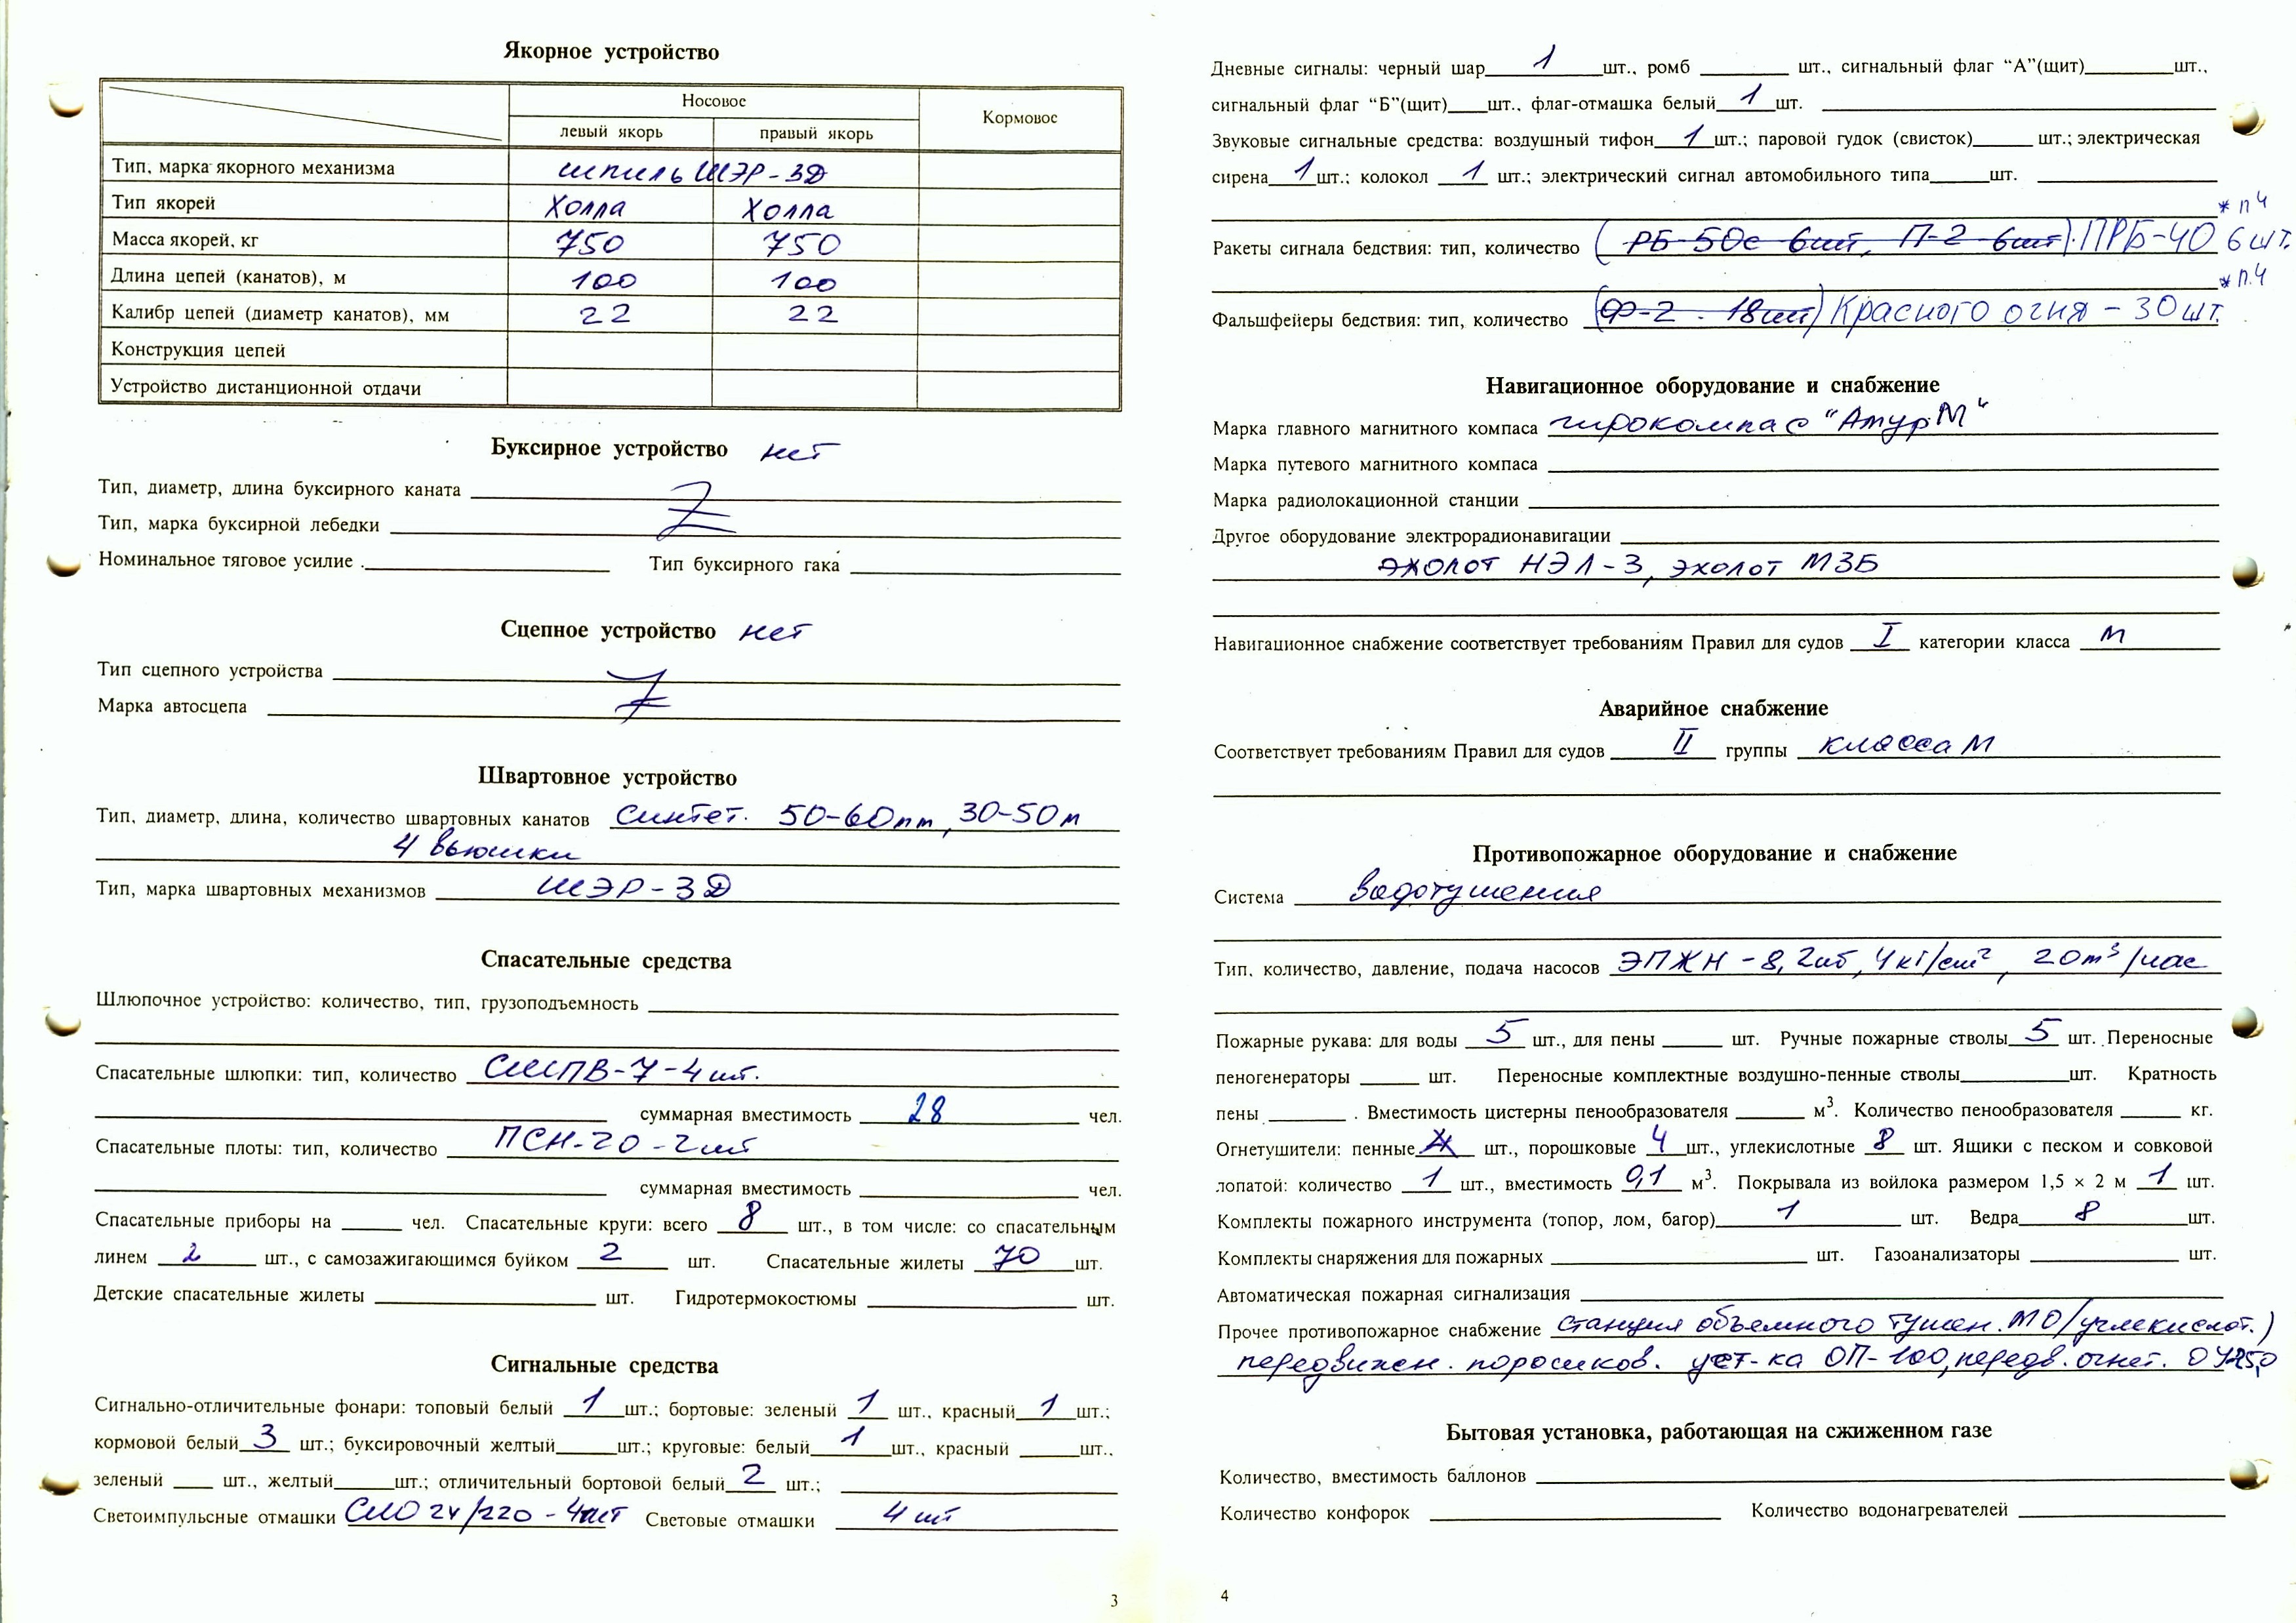 Якорное устройство
Носовое Кормовое
левый якорь правый якорь
Тип, марка якорного механизма шпиль ШЭР-3Д
Тип якорей Холла Холла
Масса якорей, кг 750 750
Длина цепей (канатов), м 100 100
Калибр цепей (диаметр канатов), мм 22 22
Конструкция цепей
Устройство дистанционной отдачи
Буксирное устройство нет
Тип, диаметр, длина буксирного каната
Тип, марка буксирной лебедки
Номинальное тяговое усилие Тип буксирного гака
Сцепное устройство нет
Тип сцепного устройства
Марка автосцепа
Швартовное устройство
Тип, диаметр, длина, количество швартовных канатов синтет. 50-60мм, 30-50м
4 вьюшки
Тип, марка швартовных механизмов ШЭР-3Д
Спасательные средства
Шлюпочное устройство: количество, тип, грузоподъемность
Спасательные шлюпки: тип, количество СШПВ-7-4шт.
суммарная вместимость 28 чел.
Спасательные плоты: тип, количество ПСН-20-2шт
суммарная вместимость чел.
Спасательные приборы на чел. Спасательные круги: всего 8 шт., в том числе: со спасательным
линем 2 шт., с самозажигающимся буйком 2 шт. Спасательные жилеты 70 шт.
Детские спасательные жилеты шт. Гидротермокостюмы шт.
Сигнальные средства
Сигнально-отличительные фонари: топовый белый 1 шт.; бортовые: зеленый 1 шт., красный 1 шт.;
кормовой белый 3 шт.; буксировочный желтый шт.; круговые: белый 1 шт., красный шт.,
зеленый шт., желтый шт.; отличительный бортовой белый 2 шт.;
Светоимпульсные отмашки СИО 24/220 - 4шт Световые отмашки 4 шт
3
Дневные сигналы: черный шар 1 шт., ромб шт., сигнальный флаг “А”(щит) шт.,
сигнальный флаг “Б”(щит) шт., флаг-отмашка белый 1 шт.
Звуковые сигнальные средства: воздушный тифон 1 шт.; паровой гудок (свисток) шт.; электрическая
сирена 1 шт.; колокол 1 шт.; электрический сигнал автомобильного типа шт.
* п 4
Ракеты сигнала бедствия: тип, количество (РБ-50с 6шт, П-2 6шт). ПРБ-40 6 шт.
* п.4
Фальшфейеры бедствия: тип, количество (Ф-2 - 18шт) Красного огня - 30 шт.
Навигационное оборудование и снабжение
Марка главного магнитного компаса гирокомпас "Амур М"
Марка путевого магнитного компаса
Марка радиолокационной станции
Другое оборудование электрорадионавигации
эхолот НЭЛ-3, эхолот МЗБ
Навигационное снабжение соответствует требованиям Правил для судов I категории класса М
Аварийное снабжение
Соответствует требованиям Правил для судов II группы класса М
Противопожарное оборудование и снабжение
Система водотушения
Тип, количество, давление, подача насосов ЭПЖН-8, 2шт, 4кг/см², 20м³/час
Пожарные рукава: для воды 5 шт., для пены шт. Ручные пожарные стволы 5 шт. Переносные
пеногенераторы шт. Переносные комплектные воздушно-пенные стволы шт. Кратность
пены . Вместимость цистерны пенообразователя м³. Количество пенообразователя кг.
Огнетушители: пенные шт., порошковые 4 шт., углекислотные 8 шт. Ящики с песком и совковой
лопатой: количество 1 шт., вместимость 0,1 м³. Покрывала из войлока размером 1,5 × 2 м 1 шт.
Комплекты пожарного инструмента (топор, лом, багор) 1 шт. Ведра 8 шт.
Комплекты снаряжения для пожарных шт. Газоанализаторы шт.
Автоматическая пожарная сигнализация
Прочее противопожарное снабжение станция объемного тушен. МО/углекислот.)
передвижн. порошков. уст-ка ОП-100, передв. огнет.
Бытовая установка, работающая на сжиженном газе
Количество, вместимость баллонов
Количество конфорок Количество водонагревателей
4